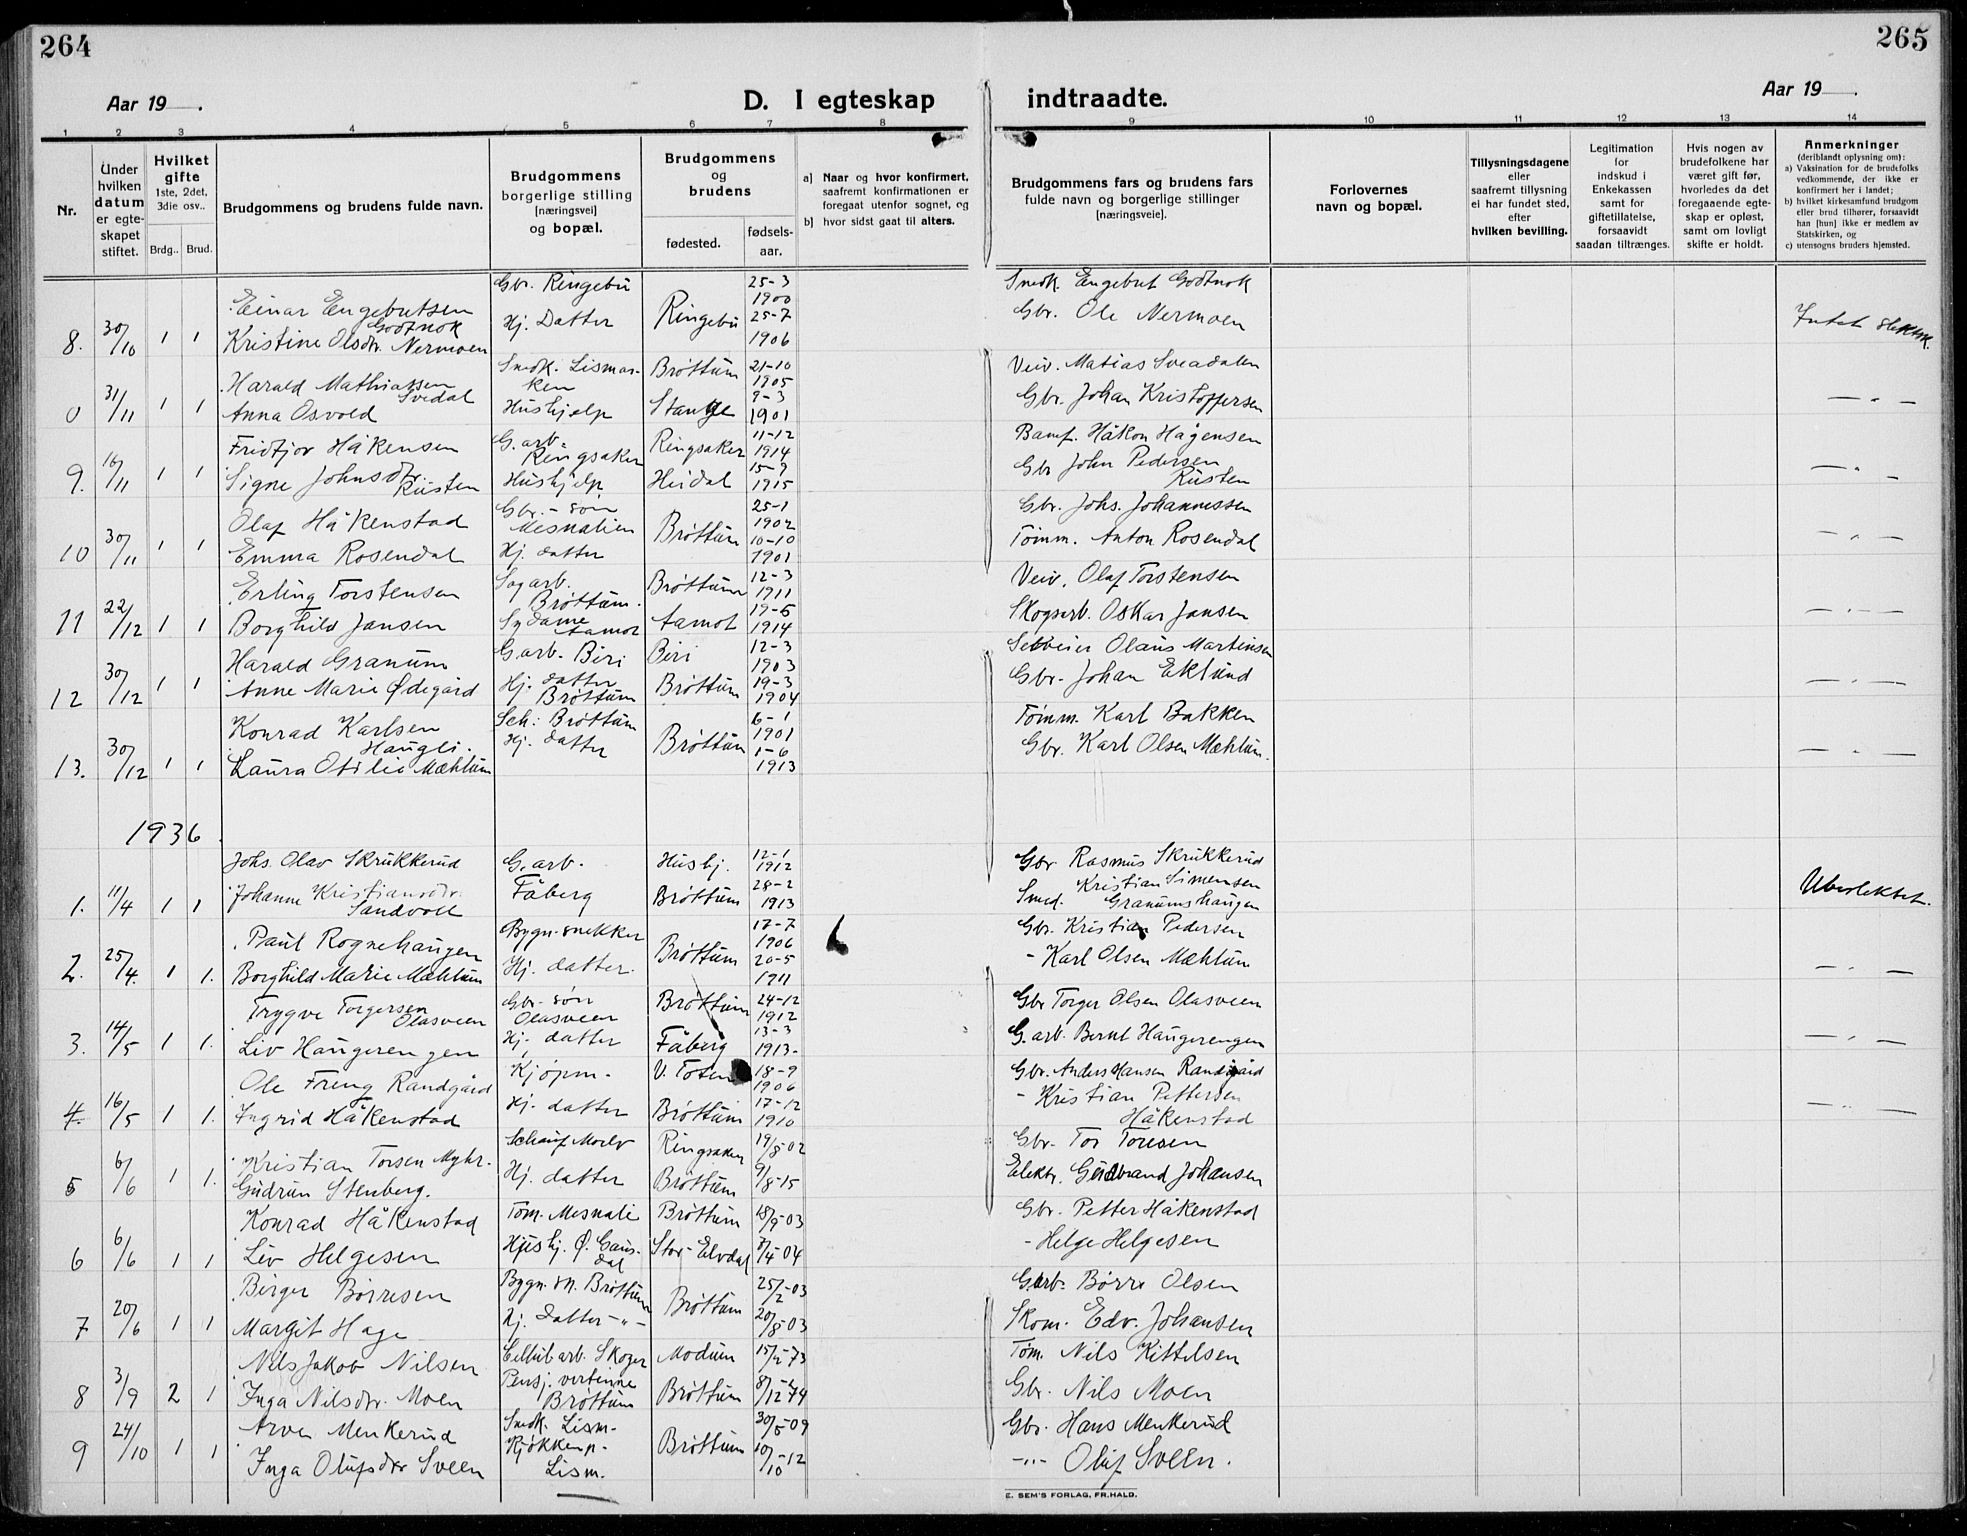 264
265
Aar 19 .
D. I egteskap
indtraadte.
Aar 19 .
1 2 3 4 5 6 7 8 9 10 11 12 13 14
Nr.
Under hvilken datum er egteskapet stiftet.
Hvilket gifte 1ste, 2det, 3die osv..
Brdg.. Brud.
Brudgommens og brudens fulde navn.
Brudgommens borgerlige stilling [næringsvei] og bopæl.
Brudgommens og brudens
fødested.
fødsels-aar.
a] Naar og hvor konfirmert, saafremt konfirmationen er foregaat utenfor sognet, og
b] hvor sidst gaat til alters.
Brudgommens fars og brudens fars fulde navn og borgerlige stillinger [næringsveie].
Forlovernes navn og bopæl.
Tillysningsdagene eller saafremt tillysning ei har fundet sted, efter hvilken bevilling.
Legitimation for indskud i Enkekassen samt for giftetillatelse, forsaavidt saadan tiltrænges.
Hvis nogen av brudefolkene har været gift før, hvorledes da det foregaaende egteskap er opløst, samt om lovligt skifte er holdt.
Anmerkninger (deriblandt oplysning om):
a) Vaksination for de brudefolks vedkommende, der ikke er konfirmert her i landet;
b) hvilket kirkesamfund brudgom eller brud tilhører, forsaavidt han [hun] ikke er medlem av Statskirken, og
c) utensogns bruders hjemsted.
Gbr. Ringebu 25-3 1900 Smedk. Engebret Godtnok
8. 30/10 1 1 Einar Engebretsen Godtnok Ringebu
Kristine Olsdr. Nermoen Hj. Datter 25-7 1906 Gbr. Ole Nermoen Intet slektsk.
Harald Mathiassen Svedal Smedk. Lismarken Brøttum 21-10 1905 Veiv. Matias Sveadalen
0 31/11 1 1 Anna Osvold Hushjelp Stange 9-3 1901 Gbr. Johan Kristoffersen — " —
Fridtjov Håkensen G.arb. Ringsaker Ringsaker 11-12 1914 Håkon Hågensen
9. 16/11 1 1 Signe Johnsdtr. Rusten Hushjelp Heidal 15-9 1915 Gbr John Pedersen Rusten — " —
Olaf Håkenstad Gbr.-søn Mesnalien Brøttum 25-1 1902 Gbr. Johs. Johannessen
10 30/11 1 1 Emma Rosendal Hj. datter 10-10 1901 Tømm. Anton Rosendal — " —
Erling Torstensen Sagarb. Brøttum. Brøttum 12-3 1911 Veiv. Olaf Torstensen
11 22/12 1 1 Borghild Jansen Sydame Aamot Aamot 19-5 1914 Skogsarb. Oskar Jansen — " —
Harald Granum G.arb. Biri Biri 12-3 1903 Olaus Martinsen
12 30/12 1 1 Anne Marie Ødegård Hj. datter Brøttum Brøttum 19-3 1904 Gbr. Johan Eklund — " —
Konrad Karlsen Haugli. Sch: Brøttum Brøttum 6-1 1901 Tømm. Karl Bakken
13. 30/12 1 1 Laura Otilie Mæhlum Hj. datter 1-6 1913 Gbr. Karl Olsen Mæhlum. — " —
1936
Johs. Olav Skrukkerud G.arb. Hushj. 12-1 1912 Gbr Rasmus Skrukkerud
1. 11/4 1 1 Johanne Kristiansdr. Sandvoll Fåberg Brøttum 28-2 1913 Smed. Kristian Simensen Granumshaugen Ubeslektet.
Paul Rognehaugen Bygn.snekker Brøttum 17-7 1906 Gbr. Kristian Pedersen
2. 25/4. 1 1. Borghild Marie Mæhlum Hj. datter. 20-5 1911 - Karl Olsen Mæhlum — " —
Trygve Torgersen Olasveen Gbr-søn Olasveen Brøttum 24-12 1912 Gbr Torger Olsen Olasveen
3. 14/5 1 1. Liv Haugerengen Hj. datter Fåberg 13-3 1913. G.arb. Bernt Haugerengen — " —
Ole Freng Randgård Kjøpm. V. Toten 18-9 1906 Gbr. Anders Hansen Randgård
4. 16/5 1 1. Ingrid Håkenstad Hj. datter Brøttum 17-12 1910 - Kristian Pettersen Håkenstad — " —
Kristian Torsen Myhr. Schauf Moelv Ringsaker 19/8-02 Gbr. Tor Toresen
5 6/6 1 1. Gudrun Stenberg. Hj. datter Brøttum 9/8-15 Elektr. Gudbrand Johansen
Konrad Håkenstad Tøm. Mesnali Brøttum 18/9-03 Gbr. Petter Håkenstad
6 6/6 1 1 Liv Helgesen Hushj. Ø. Gausdal Stor-Elvdal 7/4-04 - Helge Helgesen
Birger Børresen Bygn. sn. Brøttum Brøttum 25/2-03 G.arb. Børre Olsen
7 20/6 1 1 Margit Hage Hj. datter - " - 20/8-03 Skom. Edv. Johansen
Nils Jakob Nilsen Cellul.arb. Skoger Modum 15/2-73 Tøm. Nils Kittelsen
8 3/9 2 1 Inga Nilsdr. Moen Pensj. vertinne Brøttum Brøttum 8/12-74 Gbr. Nils Moen
Arve Menkerud Smedk. Lism. Brøttum 30/5-09 Gbr. Hans Menkerud
9 24/10 1 1 Inga Olufsdtr Sveen Kjøkkenp. Lism. 10/10-12 - " - Oluf Sveen.
E. SEM'S FORLAG, FR.HALD.